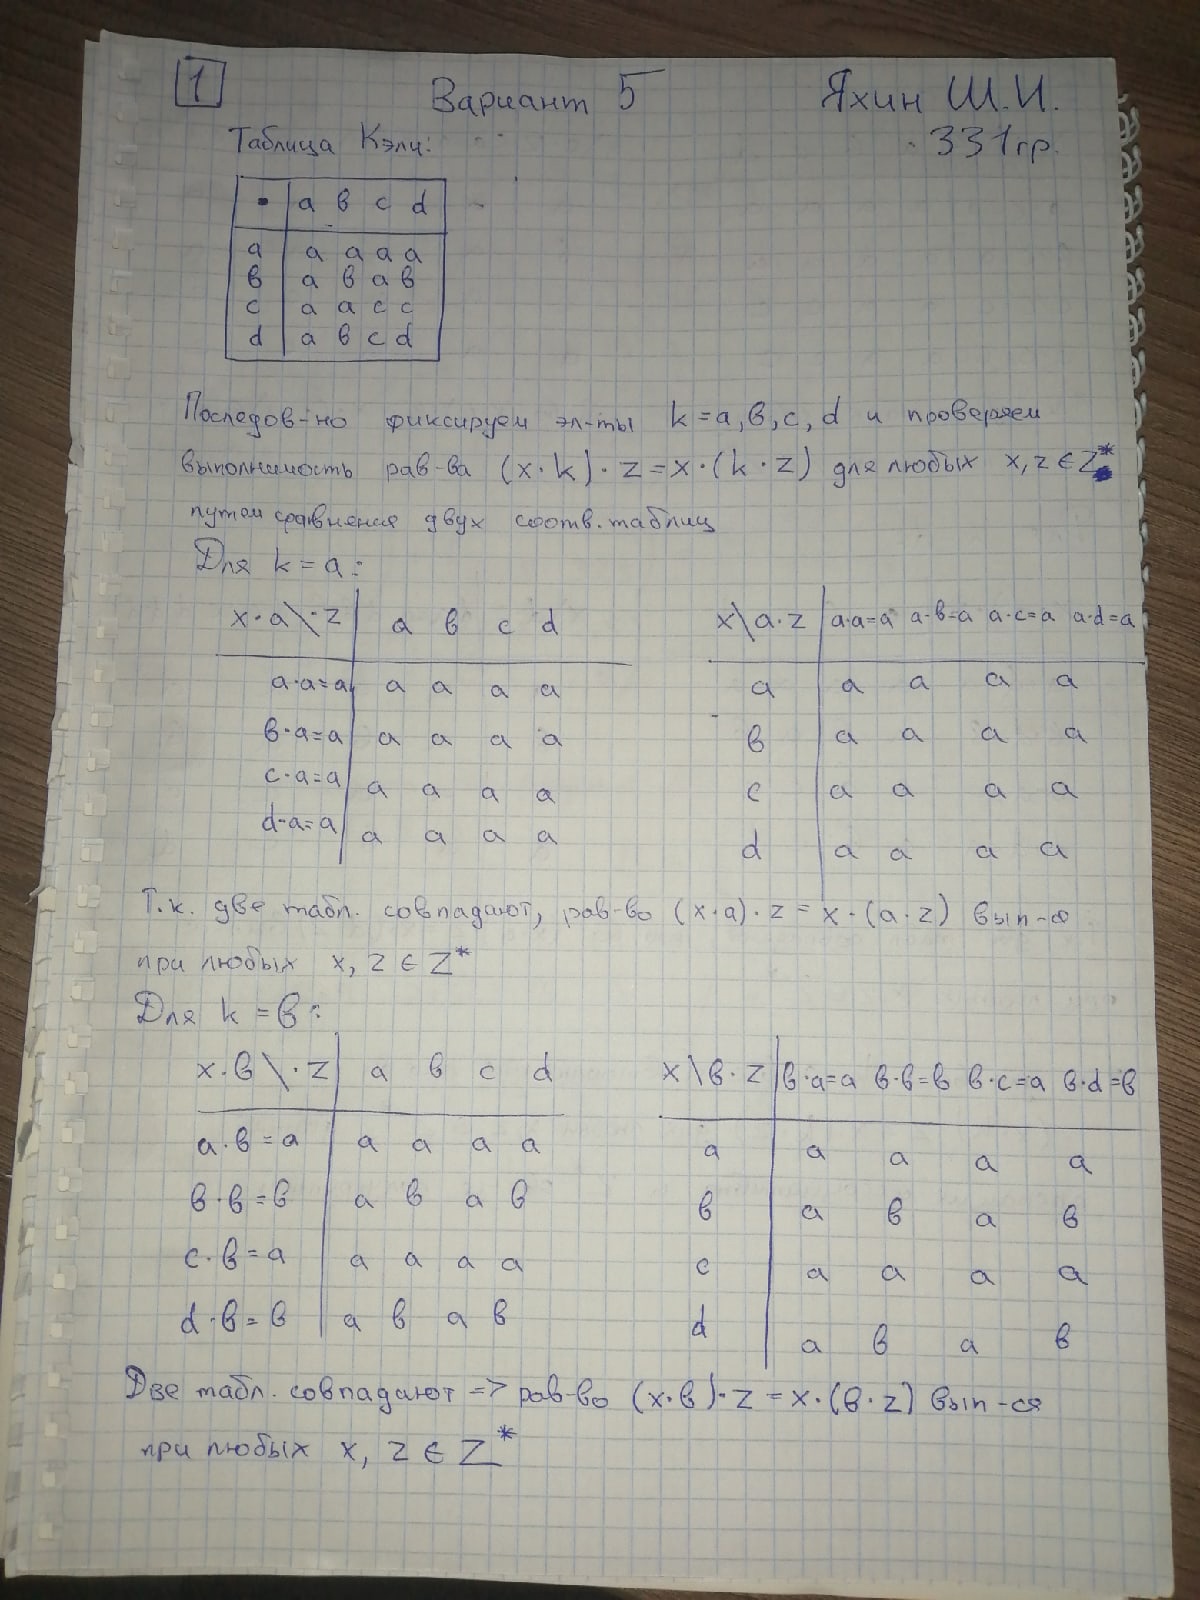 1 Вариант 5 Яхин Ш.И.
Таблица Кэли: 331гр.
· a в c d
a a a a a
в a в a в
c a a c c
d a в c d
Последов-но фиксируем эл-ты k=a, в, c, d и проверяем
выполнимость рав-ва (x·k)·z=x·(k·z) для любых x, z ∈ Z*
путем сравнения двух соотв. таблиц
Для k=a:
x·a\·z a в c d
a·a=a a a a a
в·a=a a a a a
c·a=a a a a a
d·a=a a a a a
x\a·z a·a=a a·в=a a·c=a a·d=a
a a a a a
в a a a a
c a a a a
d a a a a
Т.к. две табл. совпадают, рав-во (x·a)·z=x·(a·z) вып-ся
при любых x, z ∈ Z*
Для k=в:
x·в\·z a в c d
a·в=a a a a a
в·в=в a в a в
c·в=a a a a a
d·в=в a в a в
x\в·z в·a=a в·в=в в·c=a в·d=в
a a a a a
в a в a в
c a a a a
d a в a в
Две табл. совпадают => рав-во (x·в)·z=x·(в·z) вып-ся
при любых x, z ∈ Z*